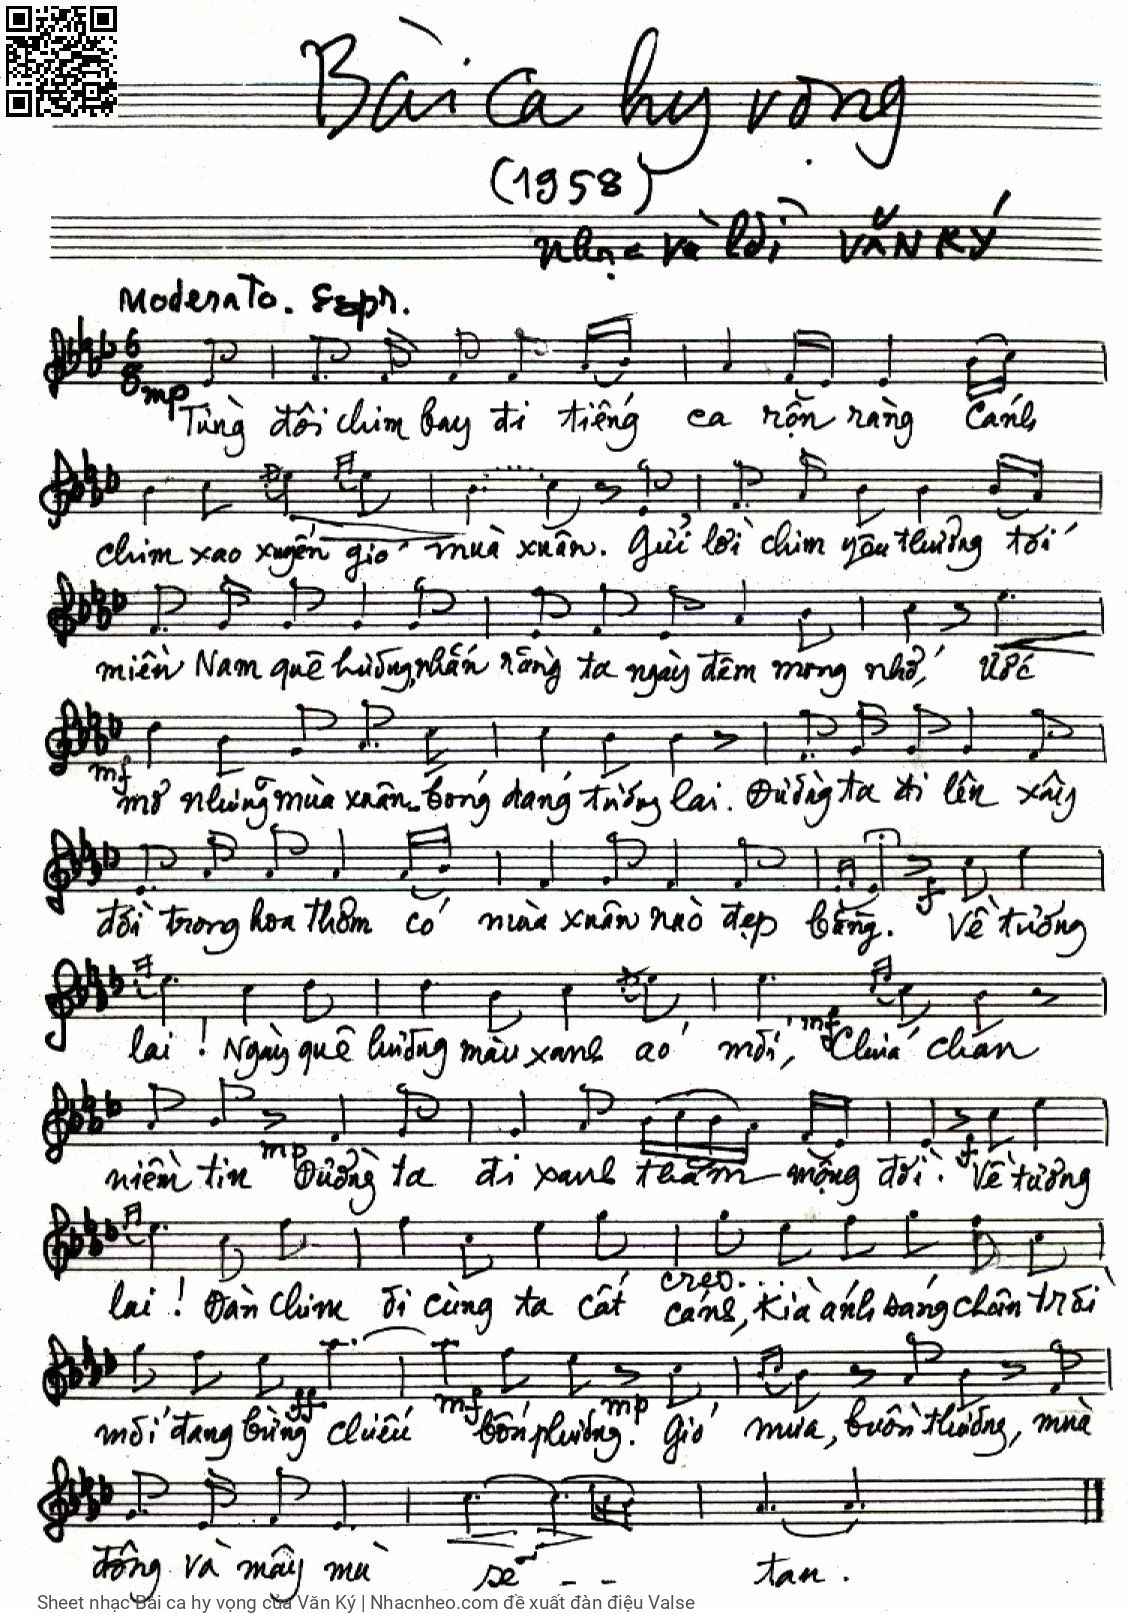 Bài ca hy vọng
(1958)
nhạc và lời VĂN KÝ
Moderato. Espr.
mp
Từng đôi chim bay đi tiếng ca rộn ràng Cánh
chim xao xuyến gió mùa xuân. Gửi lời chim yêu thương tới
miền Nam quê hương, nhắn rằng ta ngày đêm mong nhớ, Ước
mf
mơ những mùa xuân bóng dáng tương lai. Đường ta đi lên xây
f
đời trong hoa thơm có mùa xuân nào đẹp bằng. Về tương
mf
lai! Ngày quê hương màu xanh áo mới, Chứa chan
mp f
niềm tin Đường ta đi xanh thắm mộng đời. Về tương
cresc...
lai! Đàn chim đi cùng ta cất cánh, Kìa ánh sáng chân trời
ff mf mp
mới đang bừng chiếu bốn phương. Gió mưa, buồn thương, mùa
đông và mây mù sẽ - - tan.
Sheet nhạc Bài ca hy vọng của Văn Ký | Nhacnheo.com đề xuất đàn điệu Valse